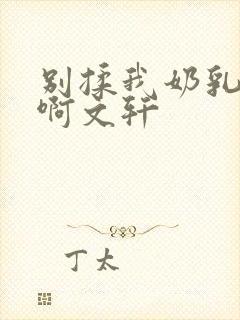 别揉我奶乳
啊文轩
丁太